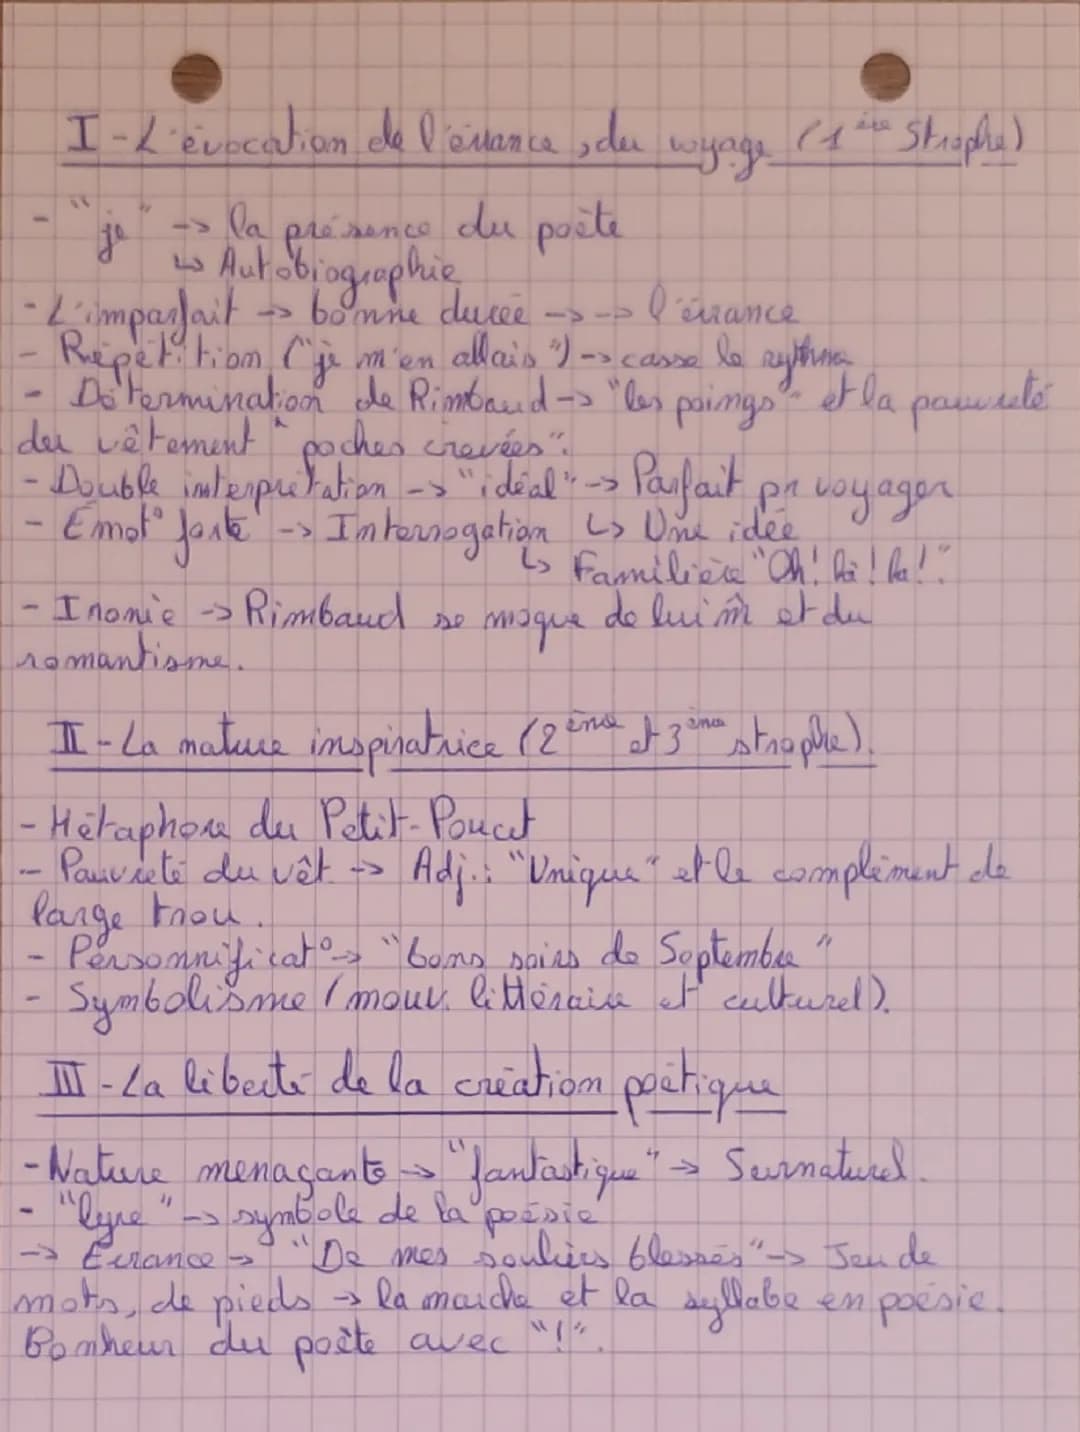 I - L'évocation de l'errance, du voyage (1ère Strophe)
- "je" -> la présence du poète
↳ Autobiographie
- L'imparfait -> bonne durée -> -> l'errance
- Répétition ("je m'en allais") -> casse le rythme
- Détermination de Rimbaud -> "les poings" et la pauvreté
du vêtement "poches crevées".
- Double interprétation -> "idéal" -> Parfait pr voyager
- Émot° forte -> Interrogation ↳ Une idée
↳ Familière "Oh! là! la!".
- Ironie -> Rimbaud se moque de lui m̂ et du
romantisme.
II - La nature inspiratrice (2ème et 3ème strophe).
- Métaphore du Petit-Poucet
- Pauvreté du vêt. -> Adj.: "Unique" et le complément de
large trou.
- Personnificat° -> "bons soirs de Septembre"
- Symbolisme (mouv. littéraire et culturel).
III - La liberté de la création poétique
- Nature menaçante -> "fantastique" -> Surnaturel.
- "lyre" -> symbole de la poésie
-> Errance -> "De mes souliers blessés" -> Jeu de
mots, de pieds -> la marche et la syllabe en poésie.
Bonheur du poète avec "!".